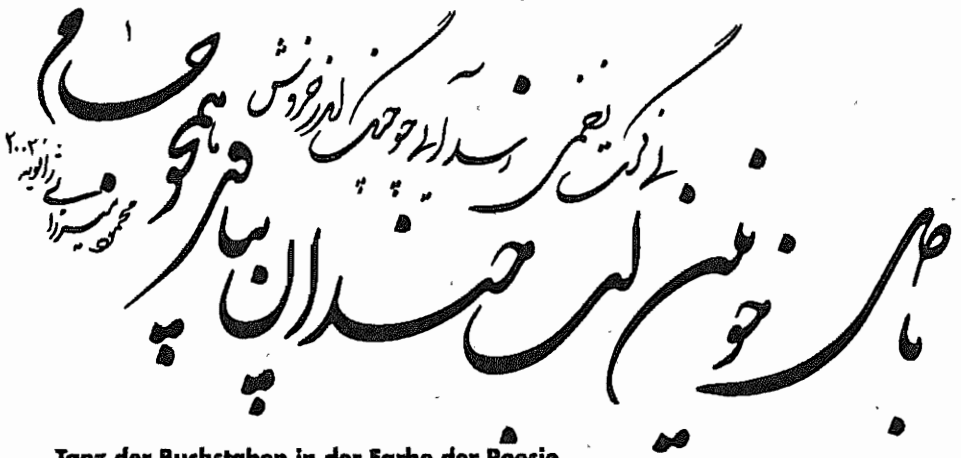 با دل خونین لب خندان بیاور همچو جام
نی گرت زخمی رسد آیی چو چنگ اندر خروش
ژانویه
Tanz der Buchstaben in der Farbe der Poesie